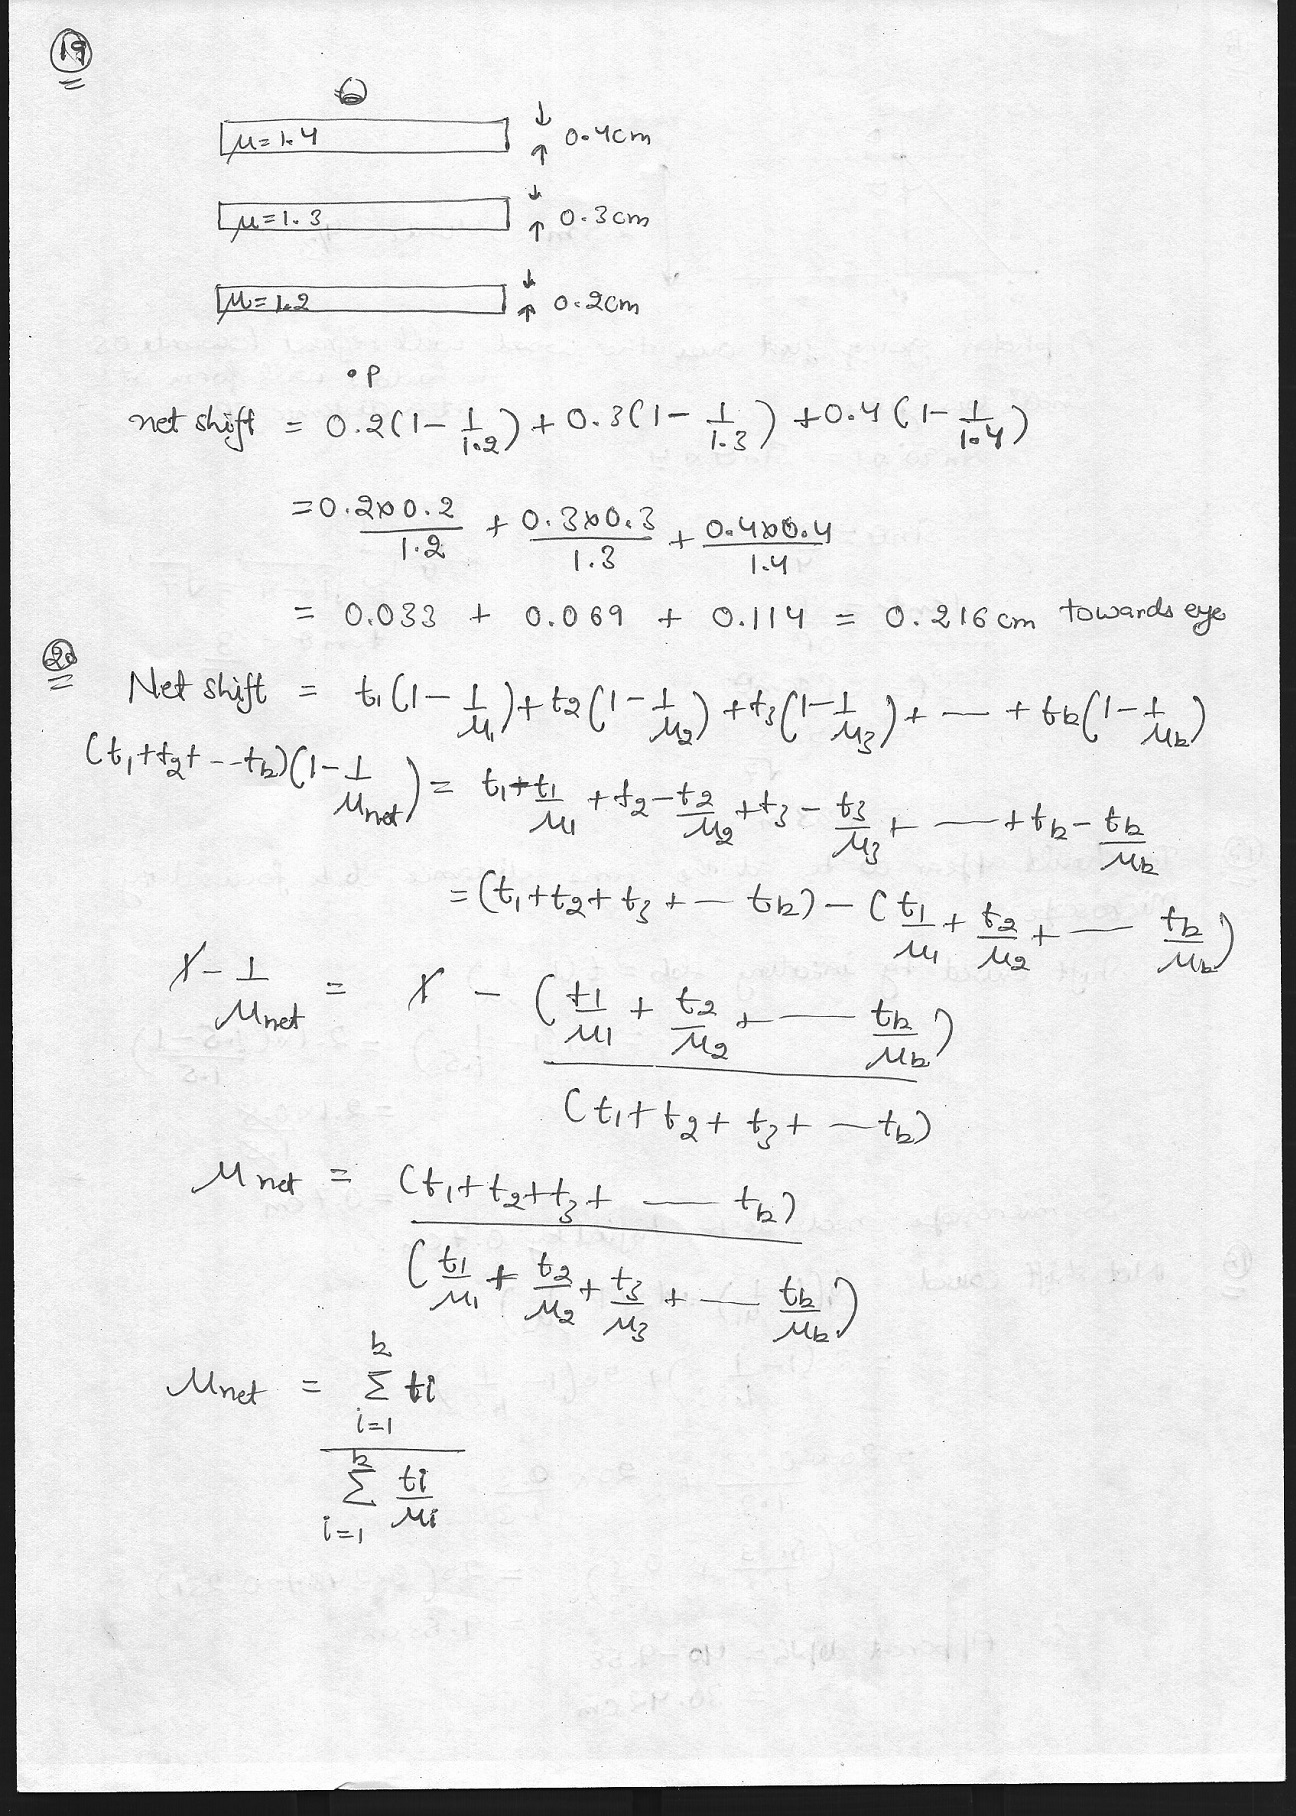 19
μ=1.4 ↓↑ 0.4cm
μ=1.3 ↓↑ 0.3cm
μ=1.2 ↓↑ 0.2cm
•P
net shift = 0.2(1-1/1.2) + 0.3(1-1/1.3) + 0.4(1-1/1.4)
= 0.2x0.2/1.2 + 0.3x0.3/1.3 + 0.4x0.4/1.4
= 0.033 + 0.069 + 0.114 = 0.216cm towards eye
20
Net shift = t1(1-1/μ1) + t2(1-1/μ2) + t3(1-1/μ3) + — + tk(1-1/μk)
(t1+t2+--tk)(1-1/μnet) = t1-t1/μ1 + t2-t2/μ2 + t3-t3/μ3 + — + tk-tk/μk
= (t1+t2+t3+— tk) - (t1/μ1 + t2/μ2 + — tk/μk)
1 - 1/μnet = 1 - (t1/μ1 + t2/μ2 + — tk/μk)/(t1+t2+t3+— tk)
μnet = (t1+t2+t3+ — tk)/(t1/μ1 + t2/μ2 + t3/μ3 + — tk/μk)
μnet = k Σ i=1 ti / k Σ i=1 ti/μi